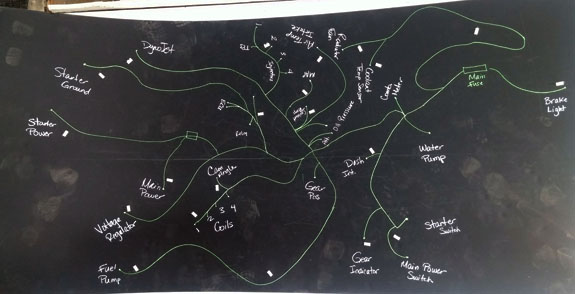 DynoJet
Starter
Ground
Starter
Power
Main
Power
Voltage
Regulator
Fuel
Pump
Cam
Angle
1 2 3 4
Coils
Gear
Pos
Air Temp
Intake
Radiator
Fan
Coolant
Temp Sensor
Oil Pressure
Main
Fuse
Brake
Light
Water
Pump
Dash
Int.
Gear
Indicator
Starter
Switch
Main Power
Switch